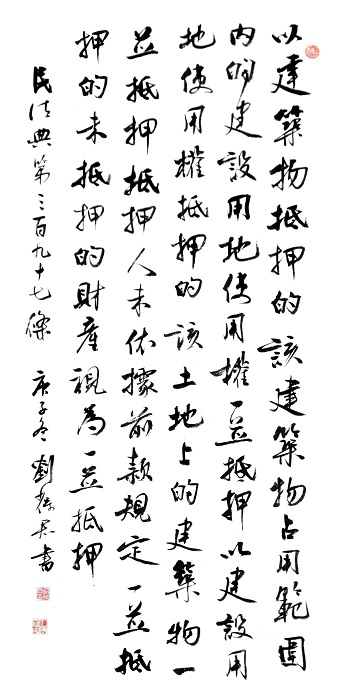 以建築物抵押的該建築物占用範圍
内的建設用地使用權一並抵押以建設用
地使用權抵押的該土地上的建築物一
並抵押抵押人未依據前款規定一並抵
押的未抵押的財產視為一並抵押
民法典第三百九十七條 庚子冬 劉 書